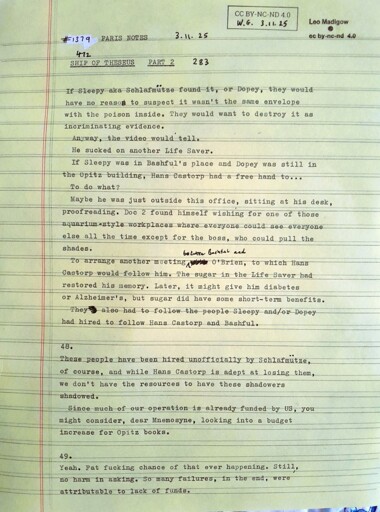 CC BY-NC-ND 4.0
W.G. 3.11.25
Leo Madigow
cc by-nc-nd 4.0
#1379 PARIS NOTES 3.11.25
472
SHIP OF THESEUS PART 2 283
If Sleepy aka Schlafmütze found it, or Dopey, they would
have no reason to suspect it wasn't the same envelope
with the poison inside. They would want to destroy it as
incriminating evidence.
Anyway, the video would tell.
He sucked on another Life Saver.
If Sleepy was in Bashful's place and Dopey was still in
the Opitz building, Hans Castorp had a free hand to...
To do what?
Maybe he was just outside this office, sitting at his desk,
proofreading. Doc 2 found himself wishing for one of those
aquarium-style workplaces where everyone could see everyone
else all the time except for the boss, who could pull the
shades.
between Bashful and
To arrange another meeting, O'Brien, to which Hans
Castorp would follow him. The sugar in the Life Saver had
restored his memory. Later, it might give him diabetes
or Alzheimer's, but sugar did have some short-term benefits.
They also had to follow the people Sleepy and/or Dopey
had hired to follow Hans Castorp and Bashful.
48.
These people have been hired unofficially by Schlafmütze,
of course, and while Hans Castorp is adept at losing them,
we don't have the resources to have these shadowers
shadowed.
Since much of our operation is already funded by US, you
might consider, dear Mnemosyne, looking into a budget
increase for Opitz books.
49.
Yeah. Fat fucking chance of that ever happening. Still,
no harm in asking. So many failures, in the end, were
attributable to lack of funds.